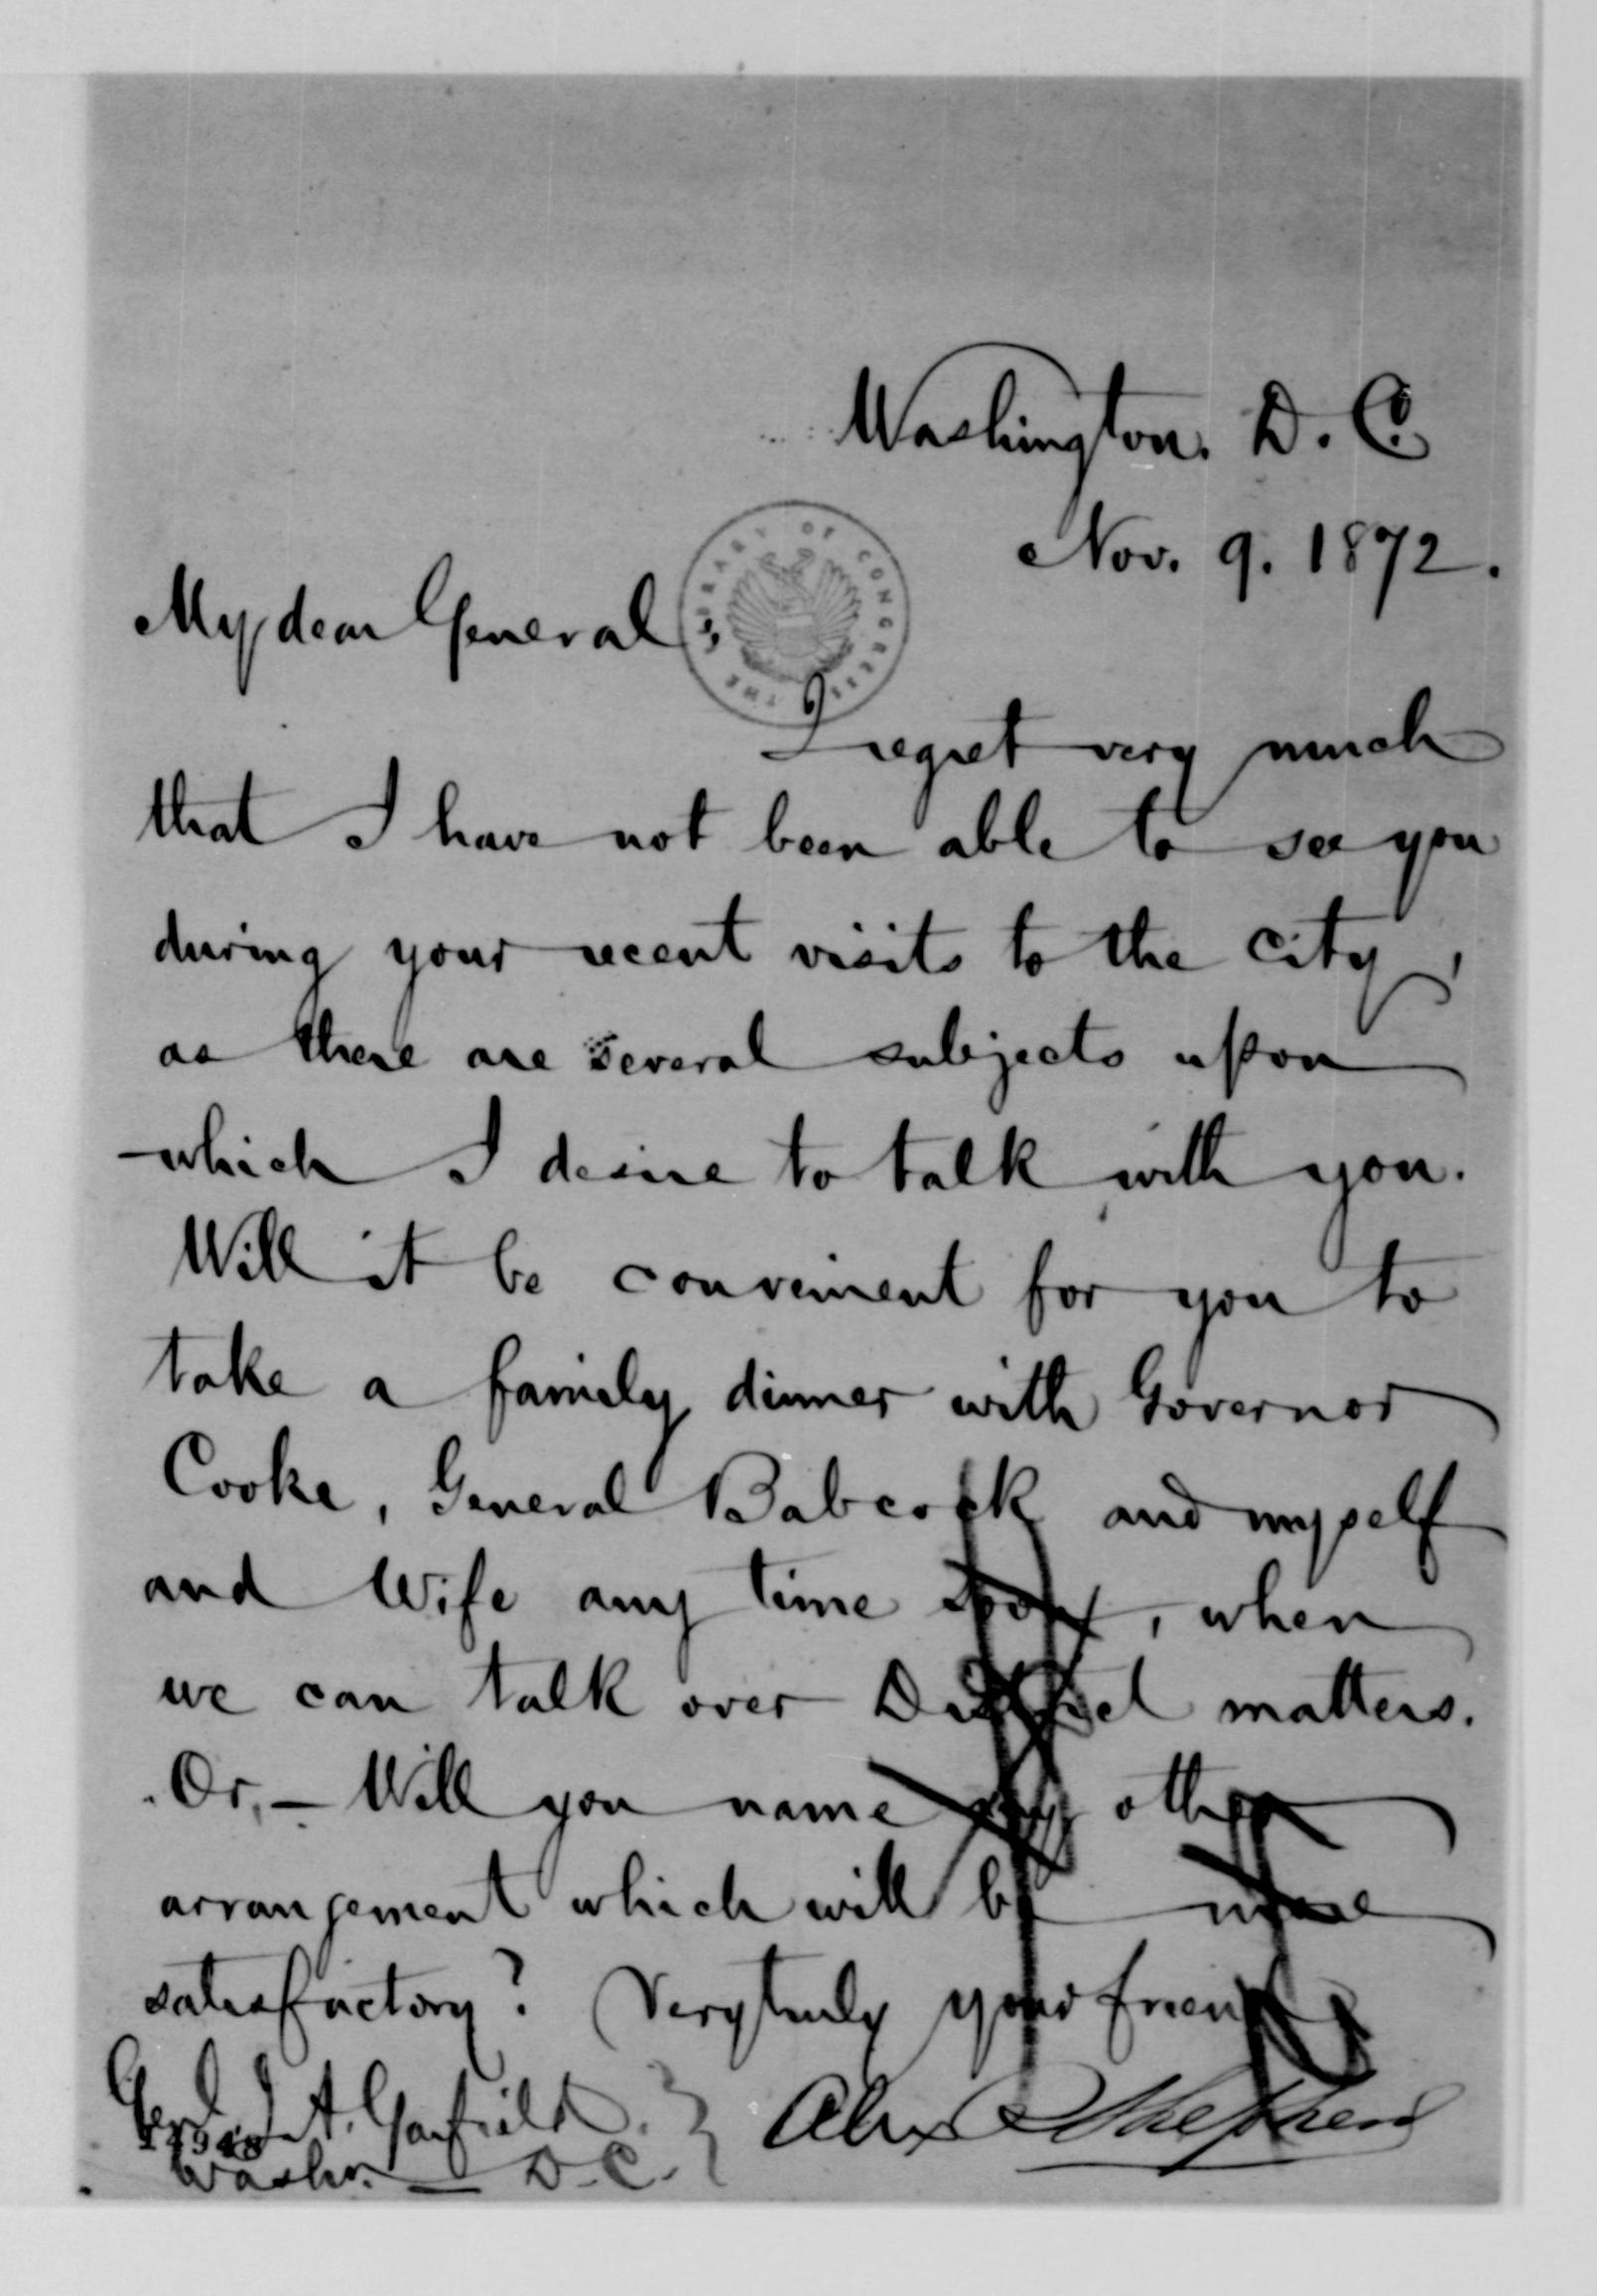 Washington. D. C.
Nov. 9. 1872.
My dear General,
THE LIBRARY OF CONGRESS
I regret very much
that I have not been able to see you
during your recent visits to the city,
as there are several subjects upon
which I desire to talk with you.
Will it be convenient for you to
take a family dinner with Governor
Cooke, General Babcock and myself
and Wife any time soon, when
we can talk over District matters.
Or, — Will you name any other
arrangement which will be more
satisfactory? Very truly your friend
Genl J. A. Garfield. Alex R Shepherd
Washn. D. C.